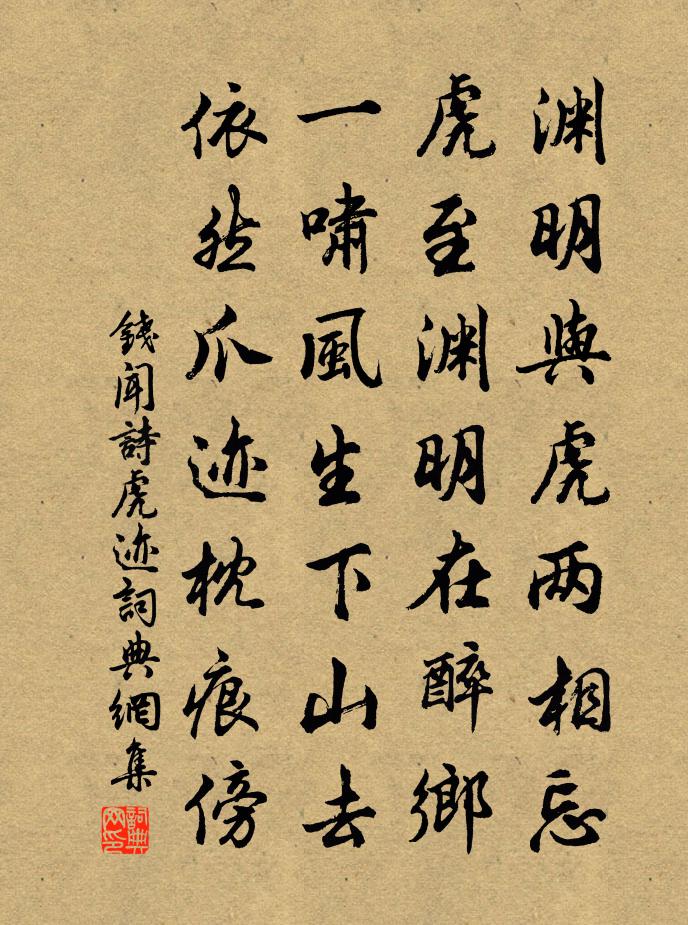 渊明與虎两相忘
虎至渊明在醉鄉
一嘯風生下山去
依然爪迹枕痕傍
錢聞詩虎迹詞典網集
詞典
网印